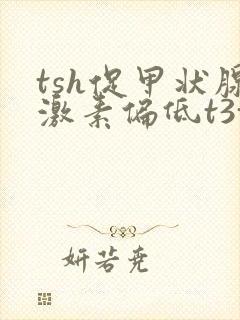 tsh促甲状腺
激素偏低t3
妍若尭